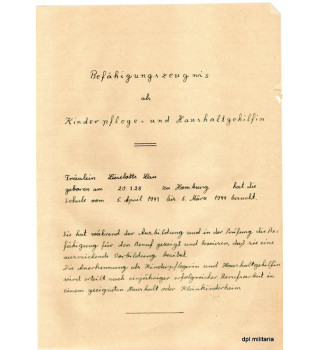 Befähigungszeugnis
als
Kinderpflege- und Haushaltgehilfin
Fräulein Liselotte
geboren am 20.1.26 zu Hamburg hat die
Schule vom 5. April 1943 bis 5. März 1944 besucht.
Sie hat während der Ausbildung und in der Prüfung die Be-
fähigung für den Beruf gezeigt und bewiesen, daß sie eine
ausreichende Vorbildung besitzt.
Die Anerkennung als Kinderpflegerin und Haushaltgehilfin
wird erteilt nach einjähriger erfolgreicher Berufsarbeit in
einem geeigneten Haushalt oder Kleinkinderheim.
dpl militaria